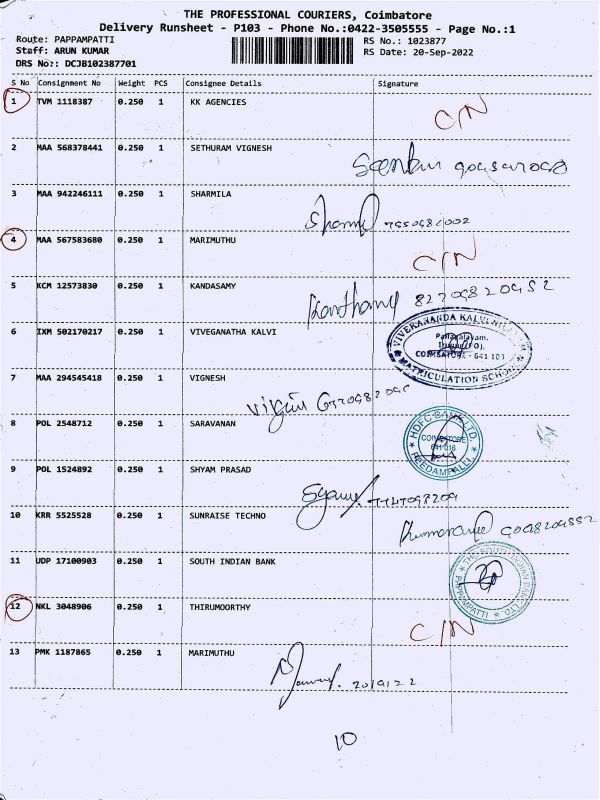 THE PROFESSIONAL COURIERS, Coimbatore
Delivery Runsheet - P103 - Phone No.:0422-3505555 - Page No.:1
Route: PAPPAMPATTI RS No.: 1023877
Staff: ARUN KUMAR RS Date: 20-Sep-2022
DRS No:: DCJB102387701
S No Consignment No Weight PCS Consignee Details Signature
1 TVM 1118387 0.250 1 KK AGENCIES C/N
2 MAA 568378441 0.250 1 SETHURAM VIGNESH
3 MAA 942246111 0.250 1 SHARMILA
4 MAA 567583680 0.250 1 MARIMUTHU C/N
5 KCM 12573830 0.250 1 KANDASAMY
6 IXM 502170217 0.250 1 VIVEGANATHA KALVI
VIVEKANANDA KALVI
COIMBATORE - 641 103
MATRICULATION SCHOOL
7 MAA 294545418 0.250 1 VIGNESH
8 POL 2548712 0.250 1 SARAVANAN
HDFC BANK LTD.
COIMBATORE
641 016
PEEDAMPALLI
9 POL 1524892 0.250 1 SHYAM PRASAD
10 KRR 5525528 0.250 1 SUNRAISE TECHNO
11 UDP 17100903 0.250 1 SOUTH INDIAN BANK
THE SOUTH INDIAN BANK LTD
PAPPAMPATTI
12 NKL 3048906 0.250 1 THIRUMOORTHY C/N
13 PMK 1187865 0.250 1 MARIMUTHU
10